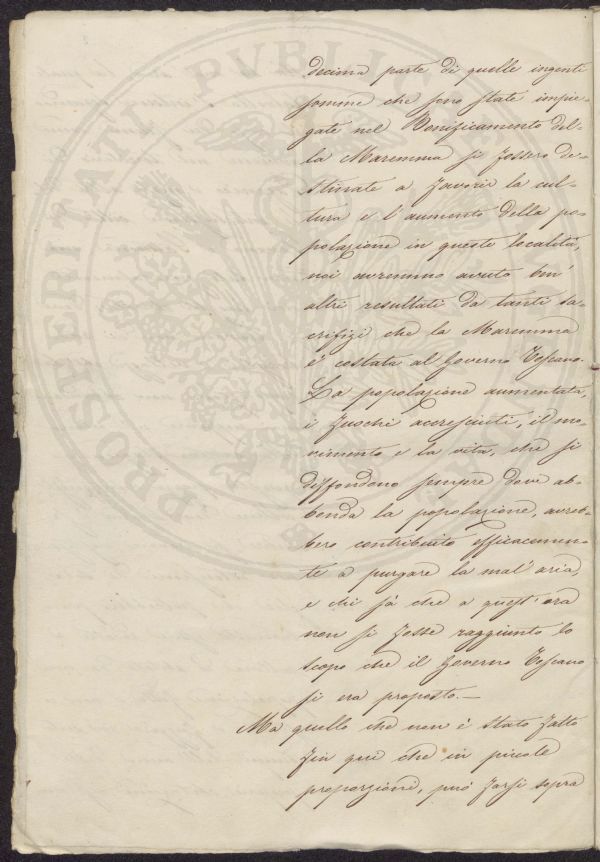 decima parte di quelle ingenti
somme che sono state impie-
gate nel Bonificamento del-
la Maremma si fossero de-
stinate a favorir la cul-
tura e l'aumento della po-
polazione in queste località,
noi avremmo avuto ben'
altri resultati da tanti sa-
crifizj che la Maremma
è costata al Governo Toscano.
La popolazione aumentata,
i fuochi accresciuti, il mo-
vimento e la vita, che si
diffondono sempre dove ab-
bonda la popolazione, avreb-
bero contribuito efficacemen-
te a purgare la mal'aria,
e chi sà che a quest'ora
non si fosse raggiunto lo
scopo che il Governo Toscano
si era proposto.—
Ma quello che non è stato fatto
fin qui che in piccole
proporzione, può farsi sopra
PROSPERITATI PVBLICAE